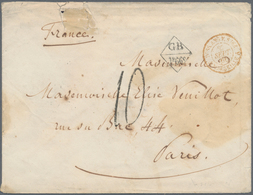 France.
GB
Mademoiselle
Mademoiselle Elise Veuillot,
10
rue du Bac, 44
Paris.